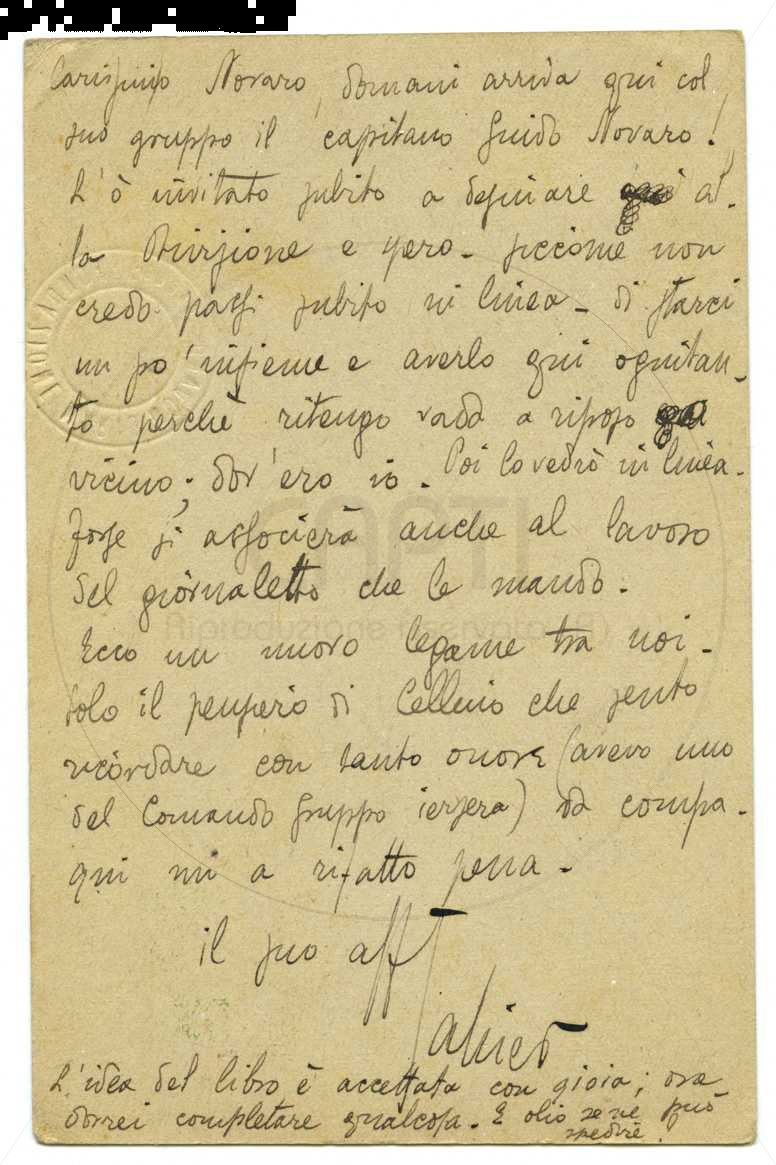 Carissimo Novaro, domani arriva qui col
suo gruppo il capitano Guido Novaro!
L'ò invitato subito a desinare qui al-
la Divisione e spero - siccome non
credo passi subito in linea - di starci
un po' insieme e averlo qui ognitan-
to perchè ritengo vada a riposo qua
vicino; dov'ero io - Poi lo vedrò in linea -
forse si associerà anche al lavoro
del giornaletto che le mando.
Ecco un nuovo legame tra noi -
solo il pensiero di Cellino che sento
ricordare con tanto onore (avevo uno
del Comando Gruppo iersera) da compa-
gni mi a rifatto pena -
il suo aff
Jahier
L'idea del libro è accettata con gioia; ora
dovrei completare qualcosa. E olio se ne può
spedire.
CARTI
Riproduzione